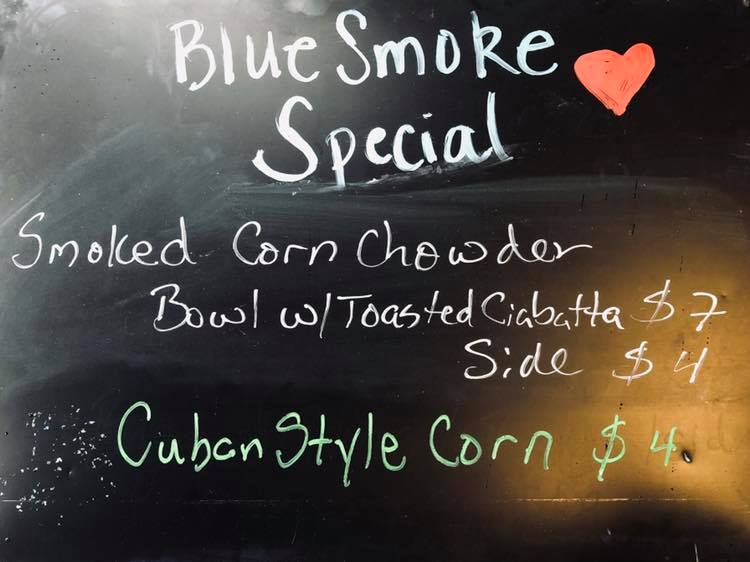 Blue Smoke
Special
Smoked Corn Chowder
Bowl w/Toasted Ciabatta $7
Side $4
Cuban Style Corn $4